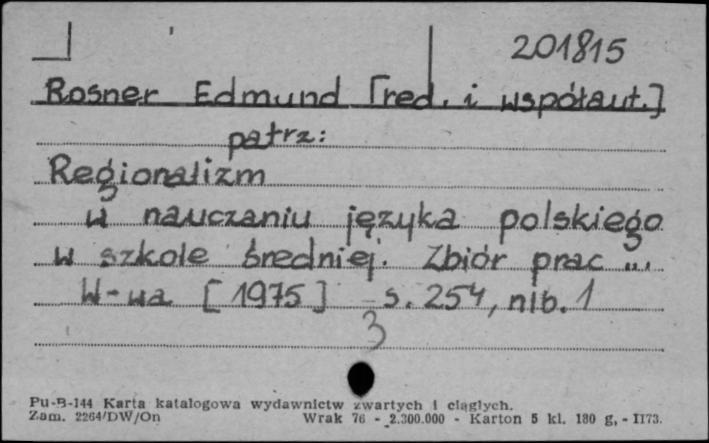 201815
Rosner Edmund [red. i współaut.]
patrz:
Regionalizm
w nauczaniu języka polskiego
w szkole średniej. Zbiór prac ...
W-wa [1975] s. 254, nlb. 1
3
Pu-B-144 Karta katalogowa wydawnictw zwartych i ciągłych.
Zam. 2264/DW/On Wrak 76 - 2.300.000 - Karton 5 kl. 180 g, - II73.